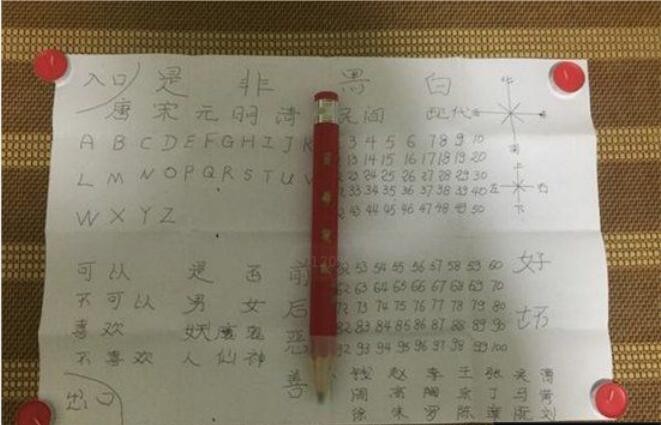 入口 是 非 黑 白 北
唐 宋 元 明 清 民间 现代
南
A B C D E F G H I J K 3 4 5 6 7 8 9 10
13 14 15 16 17 18 19 20
上
L M N O P Q R S T U V 23 24 25 26 27 28 29 30
32 33 34 35 36 37 38 39 40 左 右
W X Y Z 42 43 44 45 46 47 48 49 50 下
可以 是 否 前 52 53 54 55 56 57 58 59 60 好
62 63 64 65 66 67 68 69 70
不可以 男 女 后 72 73 74 75 76 77 78 79 80 坏
喜欢 妖魔鬼 恶 82 83 84 85 86 87 88 89 90
不喜欢 人 仙 神 92 93 94 95 96 97 98 99 100
善 钱 赵 李 王 张 吴 曹
出口 周 高 陶 京 丁 马 黄
徐 朱 罗 陈 章 阮 刘